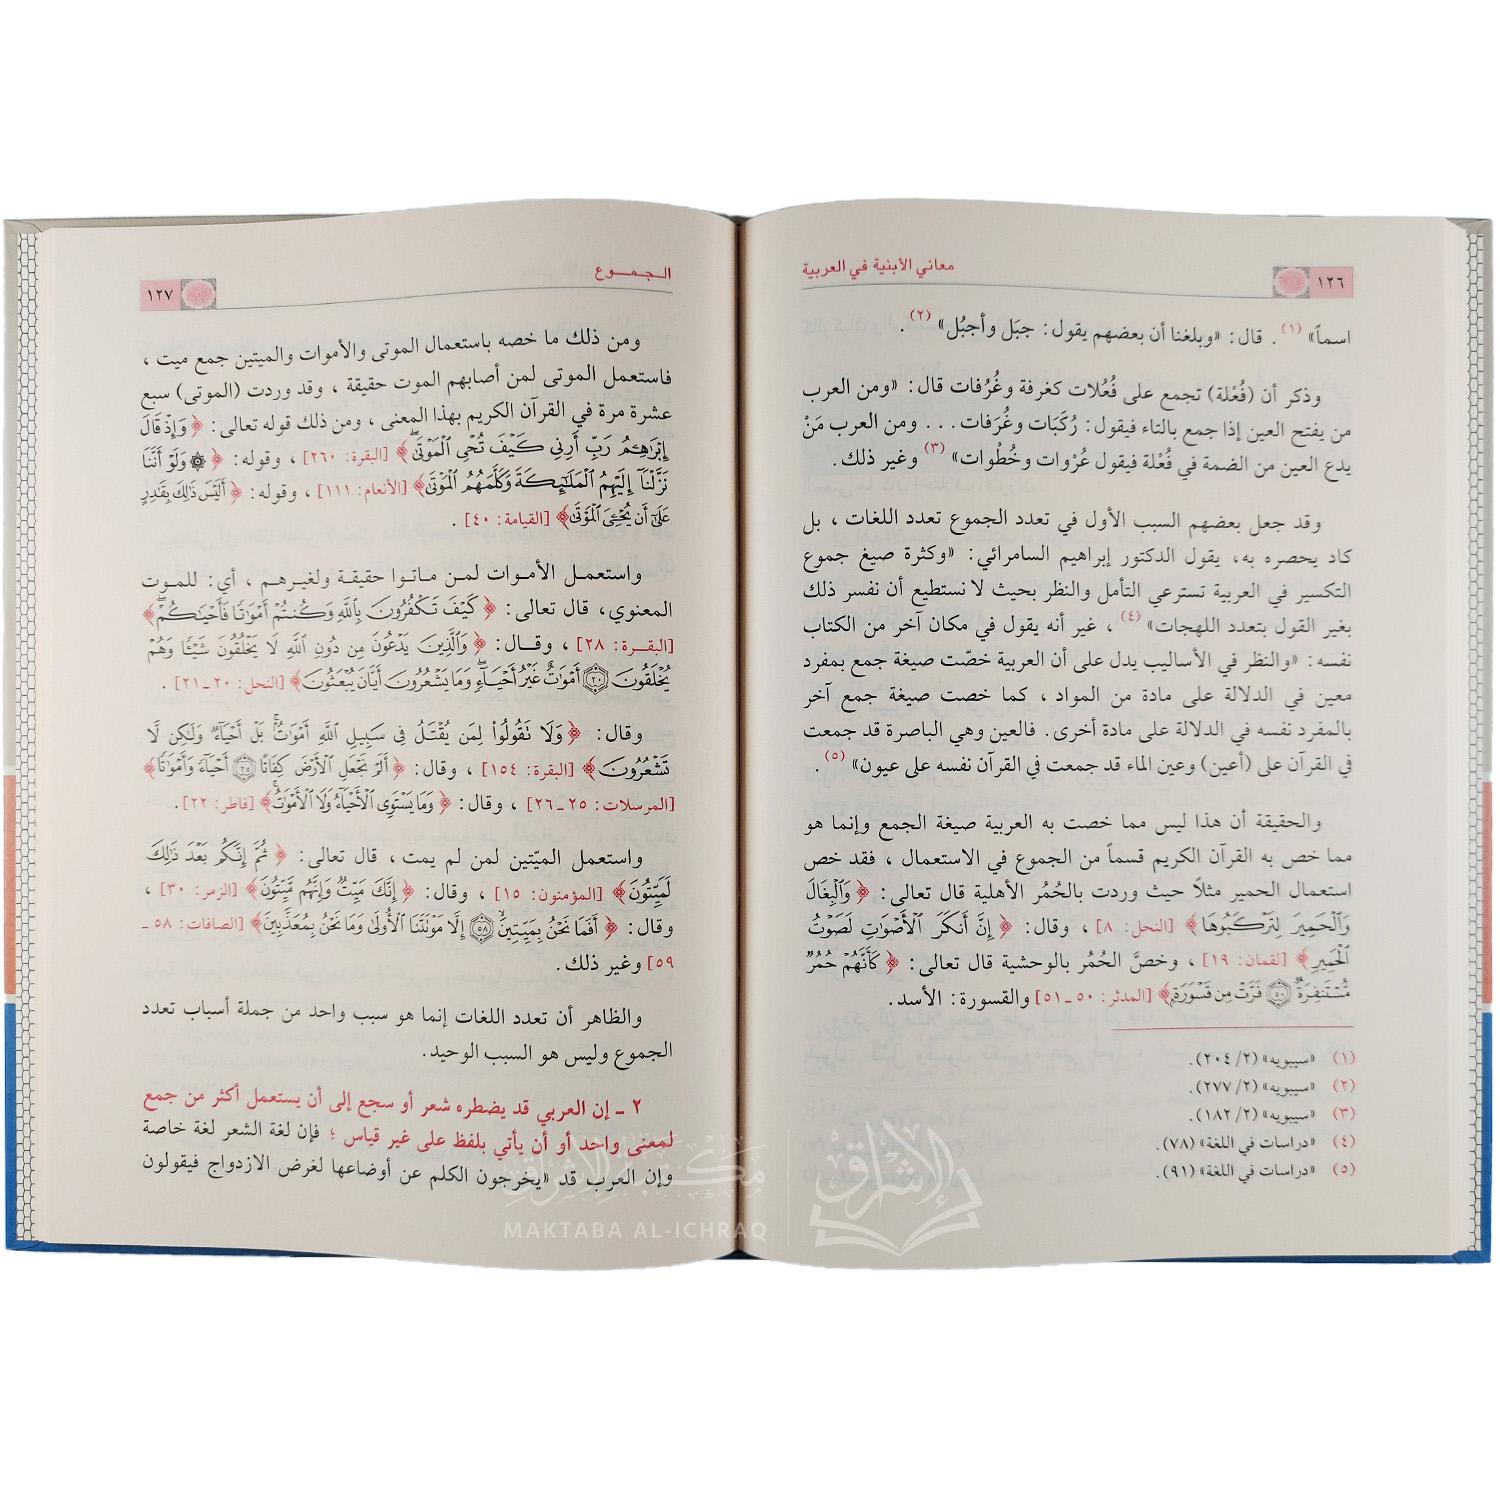 ١٢٦
معاني الأبنية في العربية
اسماً» (١). قال: «وبلغنا أن بعضهم يقول: جبَل وأجبُل» (٢).
وذكر أن (فُعْلة) تجمع على فُعُلات كغرفة وغُرُفات قال: «ومن العرب
من يفتح العين إذا جمع بالتاء فيقول: رُكَبَات وغُرَفات... ومن العرب مَنْ
يدع العين من الضمة في فُعْلة فيقول عُرْوات وخُطْوات» (٣) وغير ذلك.
وقد جعل بعضهم السبب الأول في تعدد الجموع تعدد اللغات، بل
كاد يحصره به، يقول الدكتور إبراهيم السامرائي: «وكثرة صيغ جموع
التكسير في العربية تسترعي التأمل والنظر بحيث لا نستطيع أن نفسر ذلك
بغير القول بتعدد اللهجات» (٤)، غير أنه يقول في مكان آخر من الكتاب
نفسه: «والنظر في الأساليب يدل على أن العربية خصّت صيغة جمع بمفرد
معين في الدلالة على مادة من المواد، كما خصت صيغة جمع آخر
بالمفرد نفسه في الدلالة على مادة أخرى. فالعين وهي الباصرة قد جمعت
في القرآن على (أعين) وعين الماء قد جمعت في القرآن نفسه على عيون» (٥).
والحقيقة أن هذا ليس مما خصت به العربية صيغة الجمع وإنما هو
مما خص به القرآن الكريم قسماً من الجموع في الاستعمال، فقد خص
استعمال الحمير مثلاً حيث وردت بالحُمُر الأهلية قال تعالى: ﴿وَٱلْبِغَالَ
وَٱلْحَمِيرَ لِتَرْكَبُوهَا﴾ [النحل: ٨]، وقال: ﴿إِنَّ أَنكَرَ ٱلْأَصْوَٰتِ لَصَوْتُ
ٱلْحَمِيرِ﴾ [لقمان: ١٩]، وخصَّ الحُمُر بالوحشية قال تعالى: ﴿كَأَنَّهُمْ حُمُرٌ
مُّسْتَنفِرَةٌ ٥٠ فَرَّتْ مِن قَسْوَرَةٍ﴾ [المدثر: ٥٠ ـ ٥١] والقسورة: الأسد.
(١) «سيبويه» (٢/ ٢٠٤).
(٢) «سيبويه» (٢/ ٢٧٧).
(٣) «سيبويه» (٢/ ١٨٢).
(٤) «دراسات في اللغة» (٧٨).
(٥) «دراسات في اللغة» (٩١).
الجمـوع
١٢٧
ومن ذلك ما خصه باستعمال الموتى والأموات والميتين جمع ميت،
فاستعمل الموتى لمن أصابهم الموت حقيقة، وقد وردت (الموتى) سبع
عشرة مرة في القرآن الكريم بهذا المعنى، ومن ذلك قوله تعالى: ﴿وَإِذْ قَالَ
إِبْرَٰهِـۧمُ رَبِّ أَرِنِى كَيْفَ تُحْىِ ٱلْمَوْتَىٰ﴾ [البقرة: ٢٦٠]، وقوله: ﴿۞ وَلَوْ أَنَّنَا
نَزَّلْنَآ إِلَيْهِمُ ٱلْمَلَٰٓئِكَةَ وَكَلَّمَهُمُ ٱلْمَوْتَىٰ﴾ [الأنعام: ١١١]، وقوله: ﴿أَلَيْسَ ذَٰلِكَ بِقَٰدِرٍ
عَلَىٰٓ أَن يُحْـِۧىَ ٱلْمَوْتَىٰ﴾ [القيامة: ٤٠].
واستعمل الأموات لمن ماتوا حقيقة ولغيرهم، أي: للموت
المعنوي، قال تعالى: ﴿كَيْفَ تَكْفُرُونَ بِٱللَّهِ وَكُنتُمْ أَمْوَٰتًا فَأَحْيَٰكُمْ﴾
[البقرة: ٢٨]، وقال: ﴿وَٱلَّذِينَ يَدْعُونَ مِن دُونِ ٱللَّهِ لَا يَخْلُقُونَ شَيْـًٔا وَهُمْ
يُخْلَقُونَ ٢٠ أَمْوَٰتٌ غَيْرُ أَحْيَآءٍ وَمَا يَشْعُرُونَ أَيَّانَ يُبْعَثُونَ﴾ [النحل: ٢٠ ـ ٢١].
وقال: ﴿وَلَا تَقُولُوا۟ لِمَن يُقْتَلُ فِى سَبِيلِ ٱللَّهِ أَمْوَٰتٌۢ بَلْ أَحْيَآءٌ وَلَٰكِن لَّا
تَشْعُرُونَ﴾ [البقرة: ١٥٤]، وقال: ﴿أَلَمْ نَجْعَلِ ٱلْأَرْضَ كِفَاتًا ٢٥ أَحْيَآءً وَأَمْوَٰتًا﴾
[المرسلات: ٢٥ ـ ٢٦]، وقال: ﴿وَمَا يَسْتَوِى ٱلْأَحْيَآءُ وَلَا ٱلْأَمْوَٰتُ﴾ [فاطر: ٢٢].
واستعمل الميّتين لمن لم يمت، قال تعالى: ﴿ثُمَّ إِنَّكُم بَعْدَ ذَٰلِكَ
لَمَيِّتُونَ﴾ [المؤمنون: ١٥]، وقال: ﴿إِنَّكَ مَيِّتٌ وَإِنَّهُم مَّيِّتُونَ﴾ [الزمر: ٣٠]،
وقال: ﴿أَفَمَا نَحْنُ بِمَيِّتِينَ ٥٨ إِلَّا مَوْتَتَنَا ٱلْأُولَىٰ وَمَا نَحْنُ بِمُعَذَّبِينَ﴾ [الصافات: ٥٨ ـ
٥٩] وغير ذلك.
والظاهر أن تعدد اللغات إنما هو سبب واحد من جملة أسباب تعدد
الجموع وليس هو السبب الوحيد.
٢ ـ إن العربي قد يضطره شعر أو سجع إلى أن يستعمل أكثر من جمع
لمعنى واحد أو أن يأتي بلفظ على غير قياس؛ فإن لغة الشعر لغة خاصة
وإن العرب قد «يخرجون الكلم عن أوضاعها لغرض الازدواج فيقولون
مكتبة الإشراق
MAKTABA AL-ICHRAQ
الإشراق